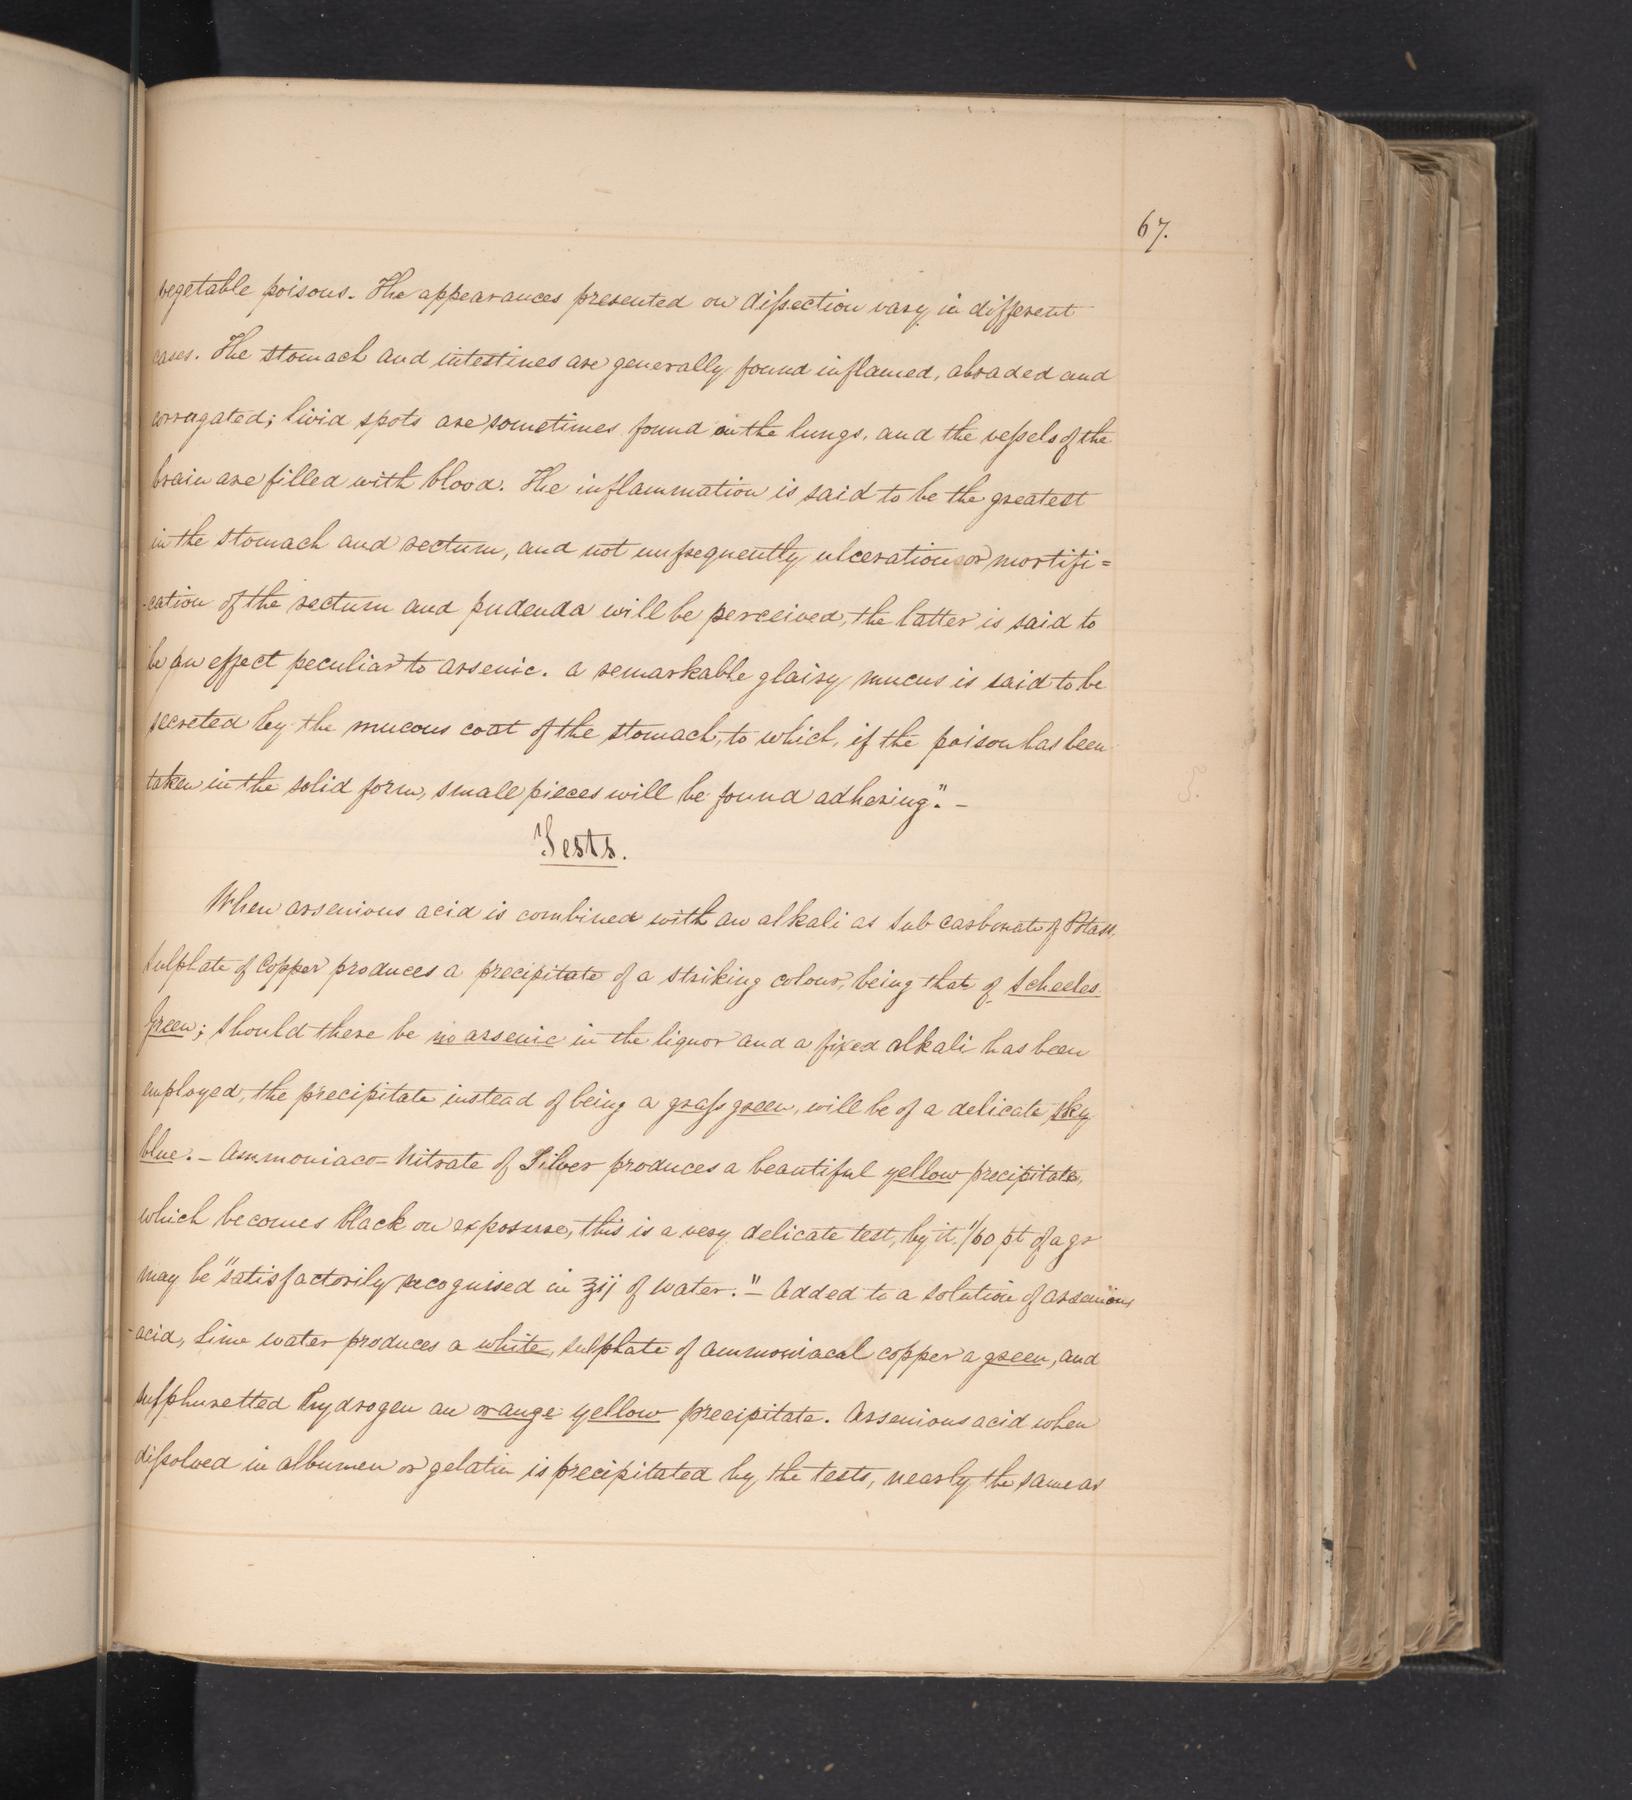 67.
vegetable poisons. The appearances presented on dissection vary in different
cases. The stomach and intestines are generally found inflamed, abraded and
corrugated; livid spots are sometimes found in the lungs, and the vessels of the
brain are filled with blood. The inflammation is said to be the greatest
in the stomach and rectum, and not unfrequently ulceration or mortifi=
-cation of the rectum and pudenda will be perceived, the latter is said to
be an effect peculiar to arsenic. a remarkable glairy mucus is said to be
secreted by the mucous coat of the stomach, to which, if the poison has been
taken in the solid form, small pieces will be found adhering". —
Tests.
When arsenious acid is combined with an alkali as Sub carbonate of Potass,
Sulphate of Copper produces a precipitate of a striking colour, being that of Scheeles
Green; should there be no arsenic in the liquor and a fixed alkali has been
employed, the precipitate instead of being a grass green, will be of a delicate sky
blue. — Ammoniaco=Nitrate of Silver produces a beautiful yellow precipitate,
which becomes black on exposure, this is a very delicate test, by it 1/60 pt of a gr
may be "satisfactorily recognised in ʒij of water." — Added to a solution of arsenious
-acid, Lime water produces a white, sulphate of ammoniacal copper a green, and
sulphuretted hydrogen an orange yellow precipitate. Arsenious acid when
dissolved in albumen or gelatin is precipitated by the tests, nearly the same as